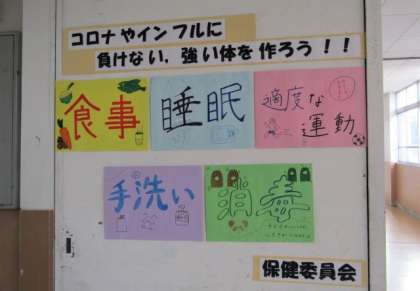 コロナやインフルに
負けない、強い体を作ろう!!
食事
睡眠
適度な
運動
手洗い
消毒
保健委員会